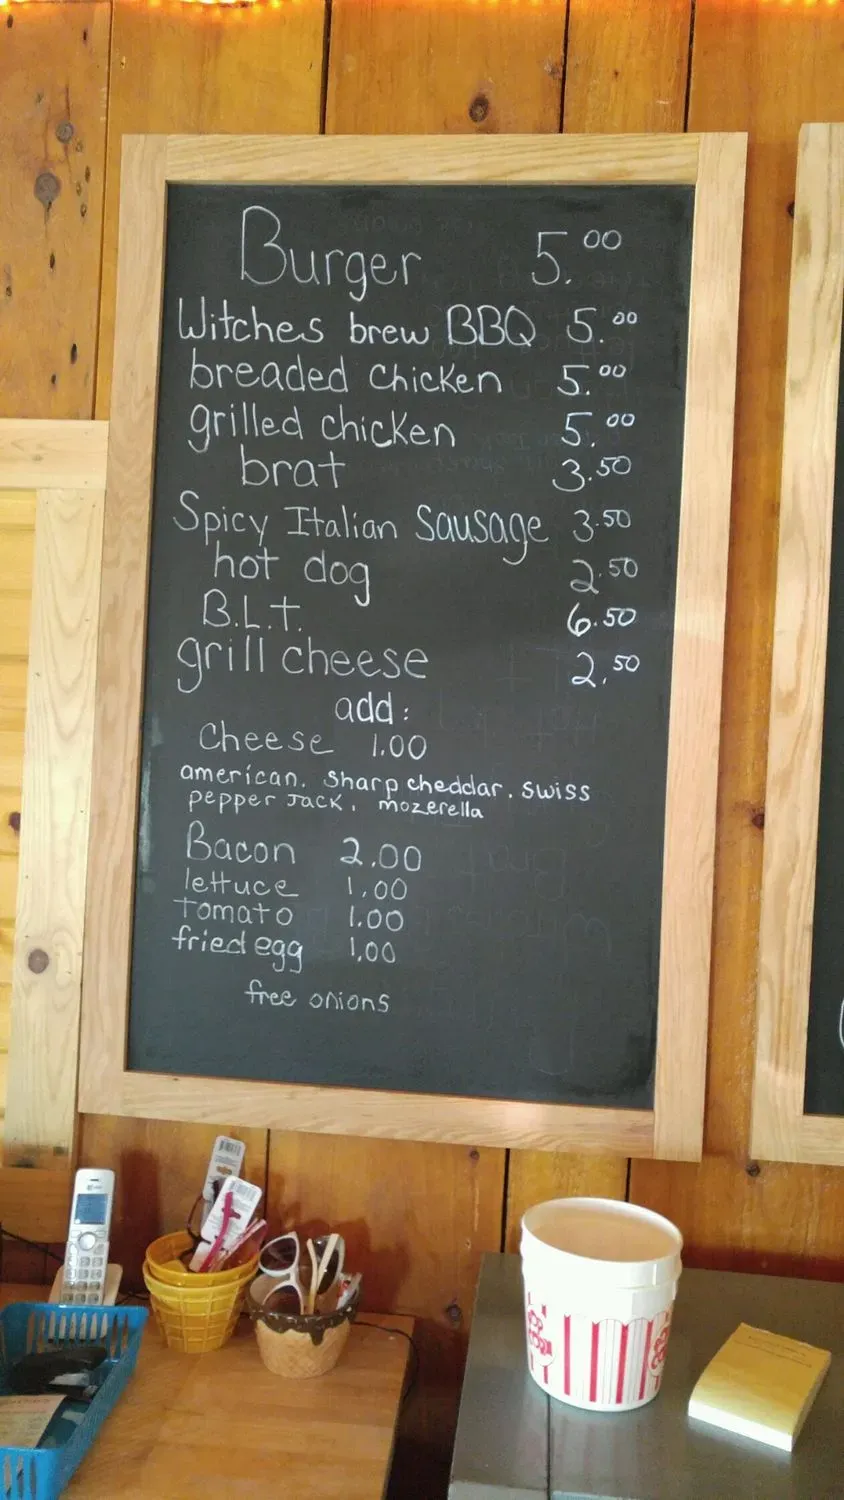 Burger 5.00
Witches brew BBQ 5.00
breaded chicken 5.00
grilled chicken 5.00
brat 3.50
Spicy Italian Sausage 3.50
hot dog 2.50
B.L.T. 6.50
grill cheese 2.50
add:
Cheese 1.00
american, sharp cheddar, swiss
pepper Jack, mozerella
Bacon 2.00
lettuce 1.00
tomato 1.00
fried egg 1.00
free onions
POP
CORN